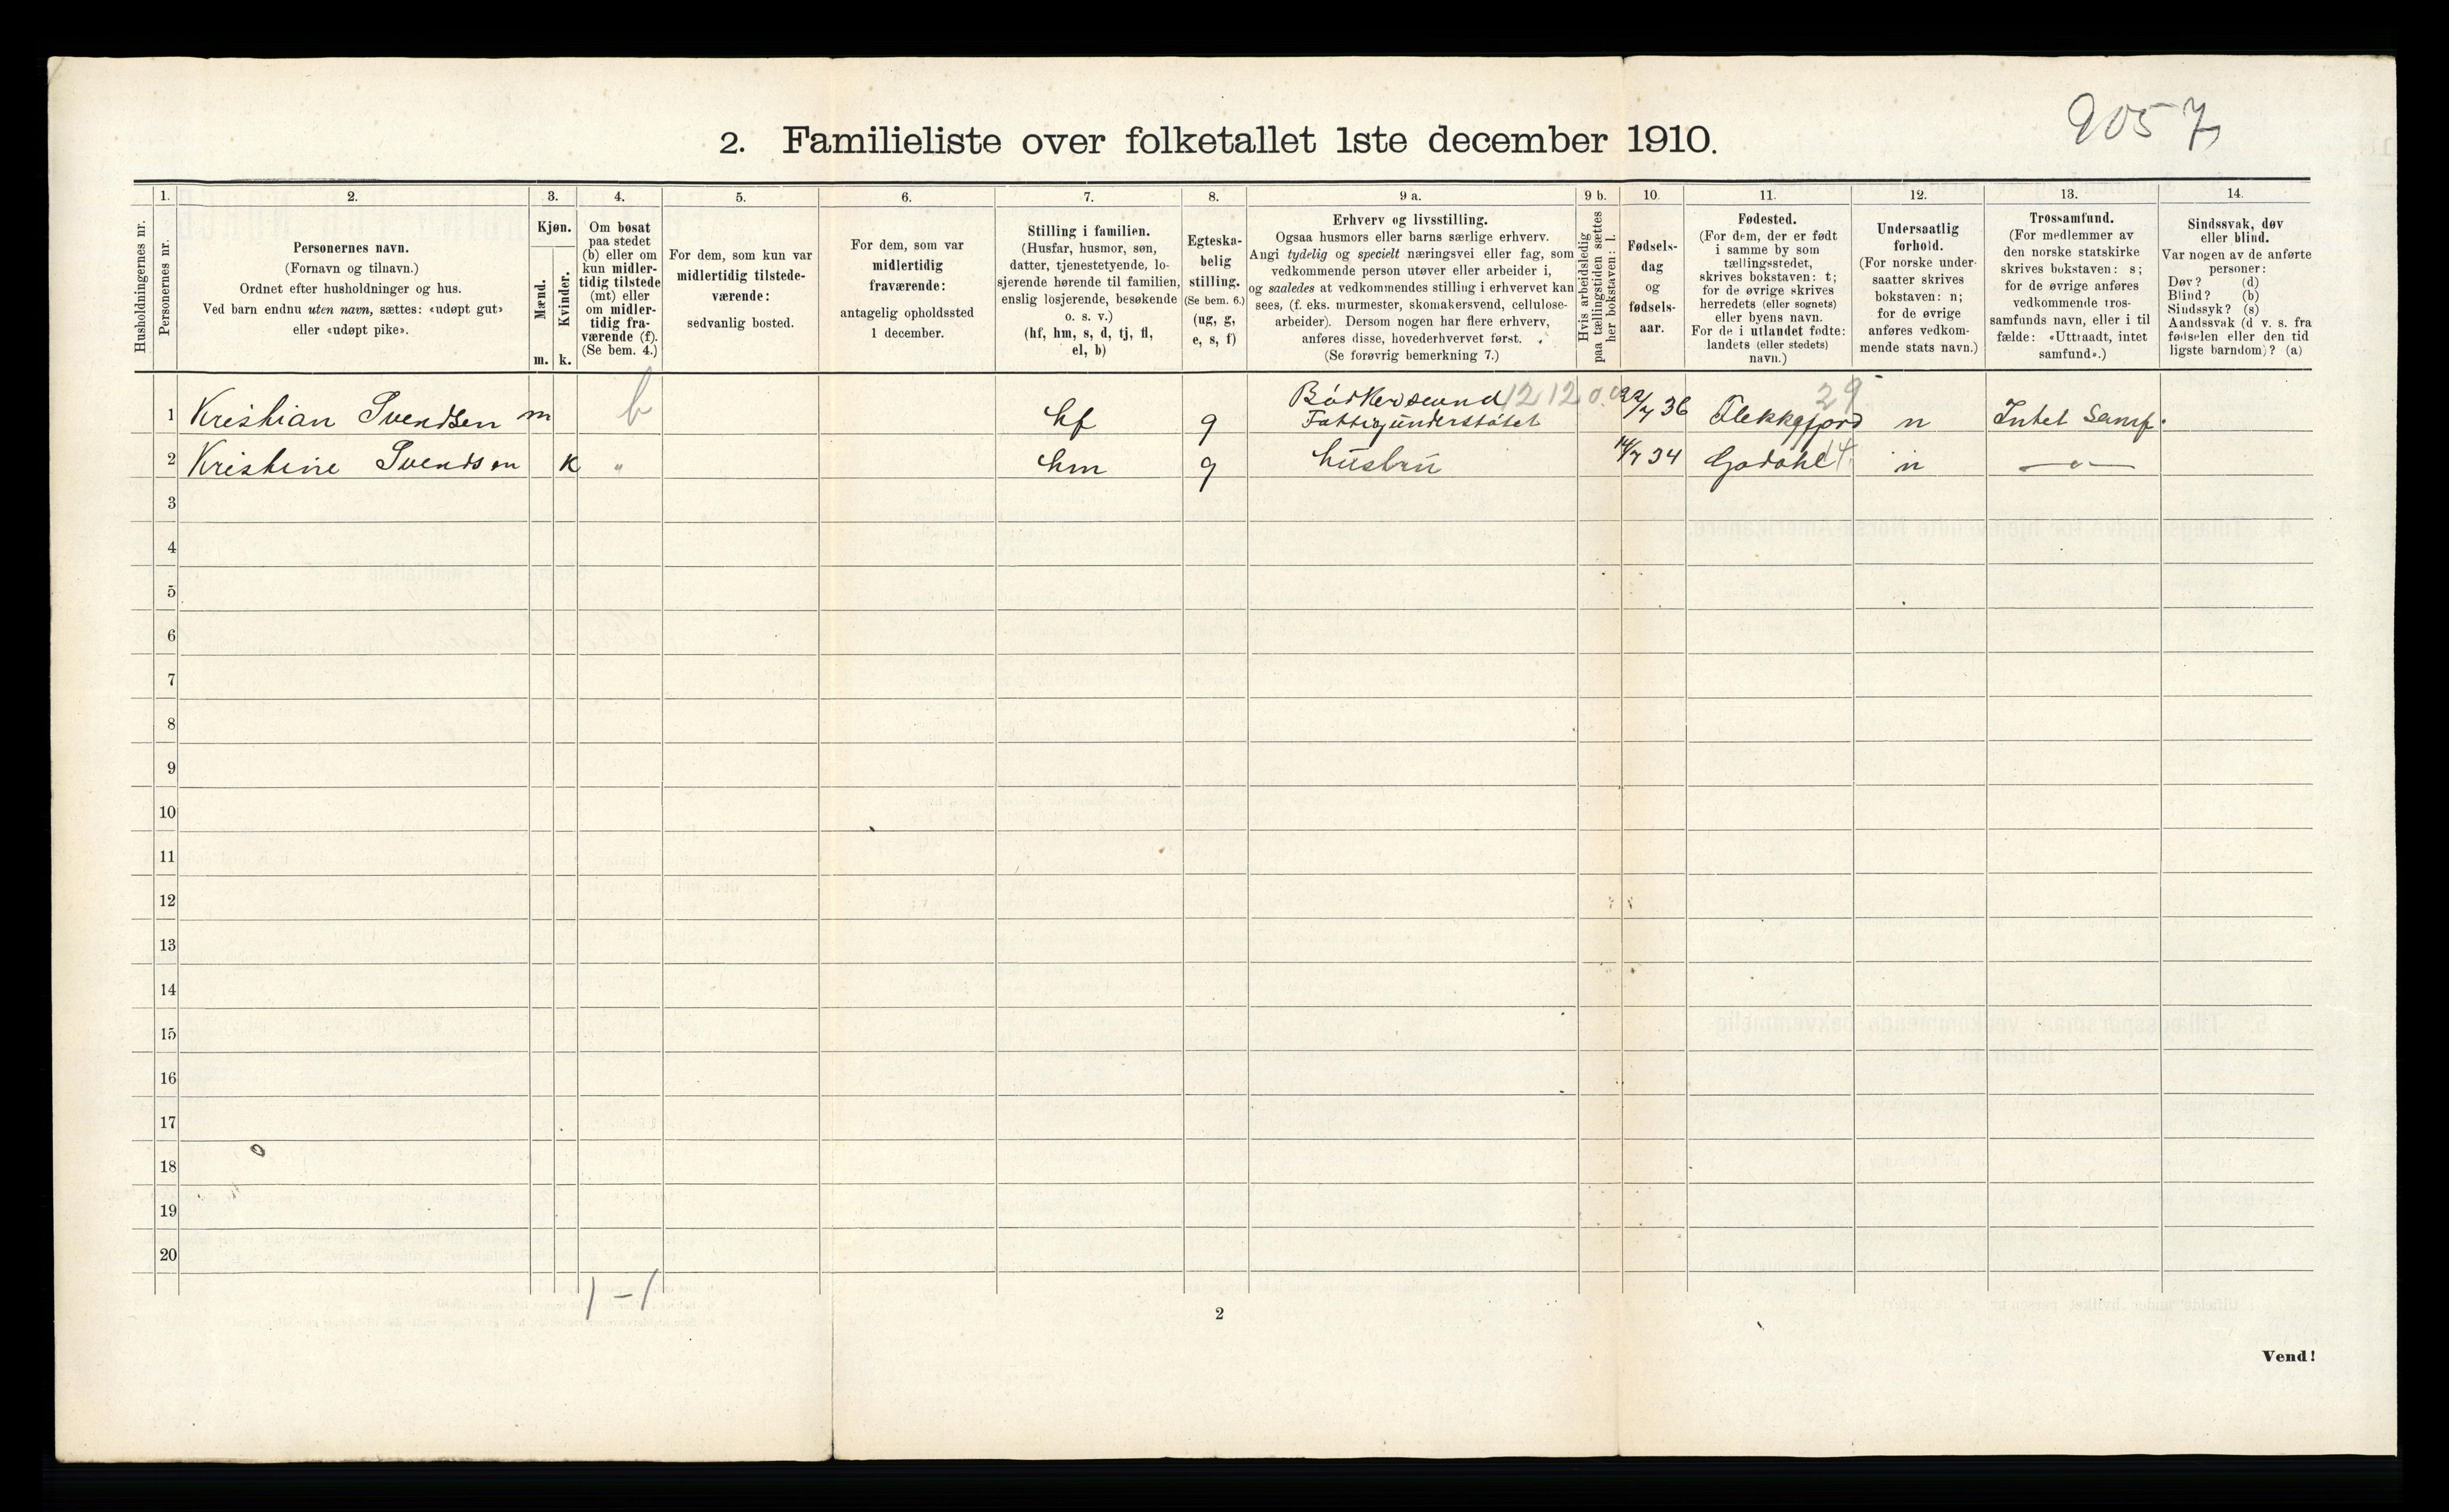 9057
2. Familieliste over folketallet 1ste december 1910.
Husholdningernes nr.
1.
Personernes nr.
2.
Personernes navn.
(Fornavn og tilnavn.)
Ordnet efter husholdninger og hus.
Ved barn endnu uten navn, sættes: «udøpt gut»
eller «udøpt pike».
3.
Kjøn.
Mænd.
m.
Kvinder.
k.
4.
Om bosat
paa stedet
(b) eller om
kun midler-
tidig tilstede
(mt) eller
om midler-
tidig fra-
værende (f).
(Se bem. 4.)
5.
For dem, som kun var
midlertidig tilstede-
værende:
sedvanlig bosted.
6.
For dem, som var
midlertidig
fraværende:
antagelig opholdssted
1 december.
7.
Stilling i familien.
(Husfar, husmor, søn,
datter, tjenestetyende, lo-
sjerende hørende til familien,
enslig losjerende, besøkende
o. s. v.)
(hf, hm, s, d, tj, fl,
el, b)
8.
Egteska-
belig
stilling.
(Se bem. 6.)
(ug, g,
e, s, f)
9 a.
Erhverv og livsstilling.
Ogsaa husmors eller barns særlige erhverv.
Angi tydelig og specielt næringsvei eller fag, som
vedkommende person utøver eller arbeider i,
og saaledes at vedkommendes stilling i erhvervet kan
sees, (f. eks. murmester, skomakersvend, cellulose-
arbeider). Dersom nogen har flere erhverv,
anføres disse, hovederhvervet først.
(Se forøvrig bemerkning 7.)
9 b.
Hvis arbeidsledig
paa tællingstiden sættes
her bokstaven: l.
10.
Fødsels-
dag
og
fødsels-
aar.
11.
Fødested.
(For dem, der er født
i samme by som
tællingsstedet,
skrives bokstaven: t;
for de øvrige skrives
herredets (eller sognets)
eller byens navn.
For de i utlandet fødte:
landets (eller stedets)
navn.)
12.
Undersaatlig
forhold.
(For norske under-
saatter skrives
bokstaven: n;
for de øvrige
anføres vedkom-
mende stats navn.)
13.
Trossamfund.
(For medlemmer av
den norske statskirke
skrives bokstaven: s;
for de øvrige anføres
vedkommende tros-
samfunds navn, eller i til
fælde: «Uttraadt, intet
samfund».)
14.
Sindssvak, døv
eller blind.
Var nogen av de anførte
personer:
Døv? (d)
Blind? (b)
Sindssyk? (s)
Aandssvak (d v. s. fra
fødselen eller den tid
ligste barndom)? (a)
Bödkersvend 1212 29
1 Kristian Svendsen m b hf g Fattigunderstötet 22/7 36 Flekkefjord n Intet Samf.
2 Kristine Svendsen K " hm g husbru 14/7 34 n —"—
3
4
5
6
7
8
9
10
11
12
13
14
15
16
17
18
19
20
1 - 1
2
Vend!